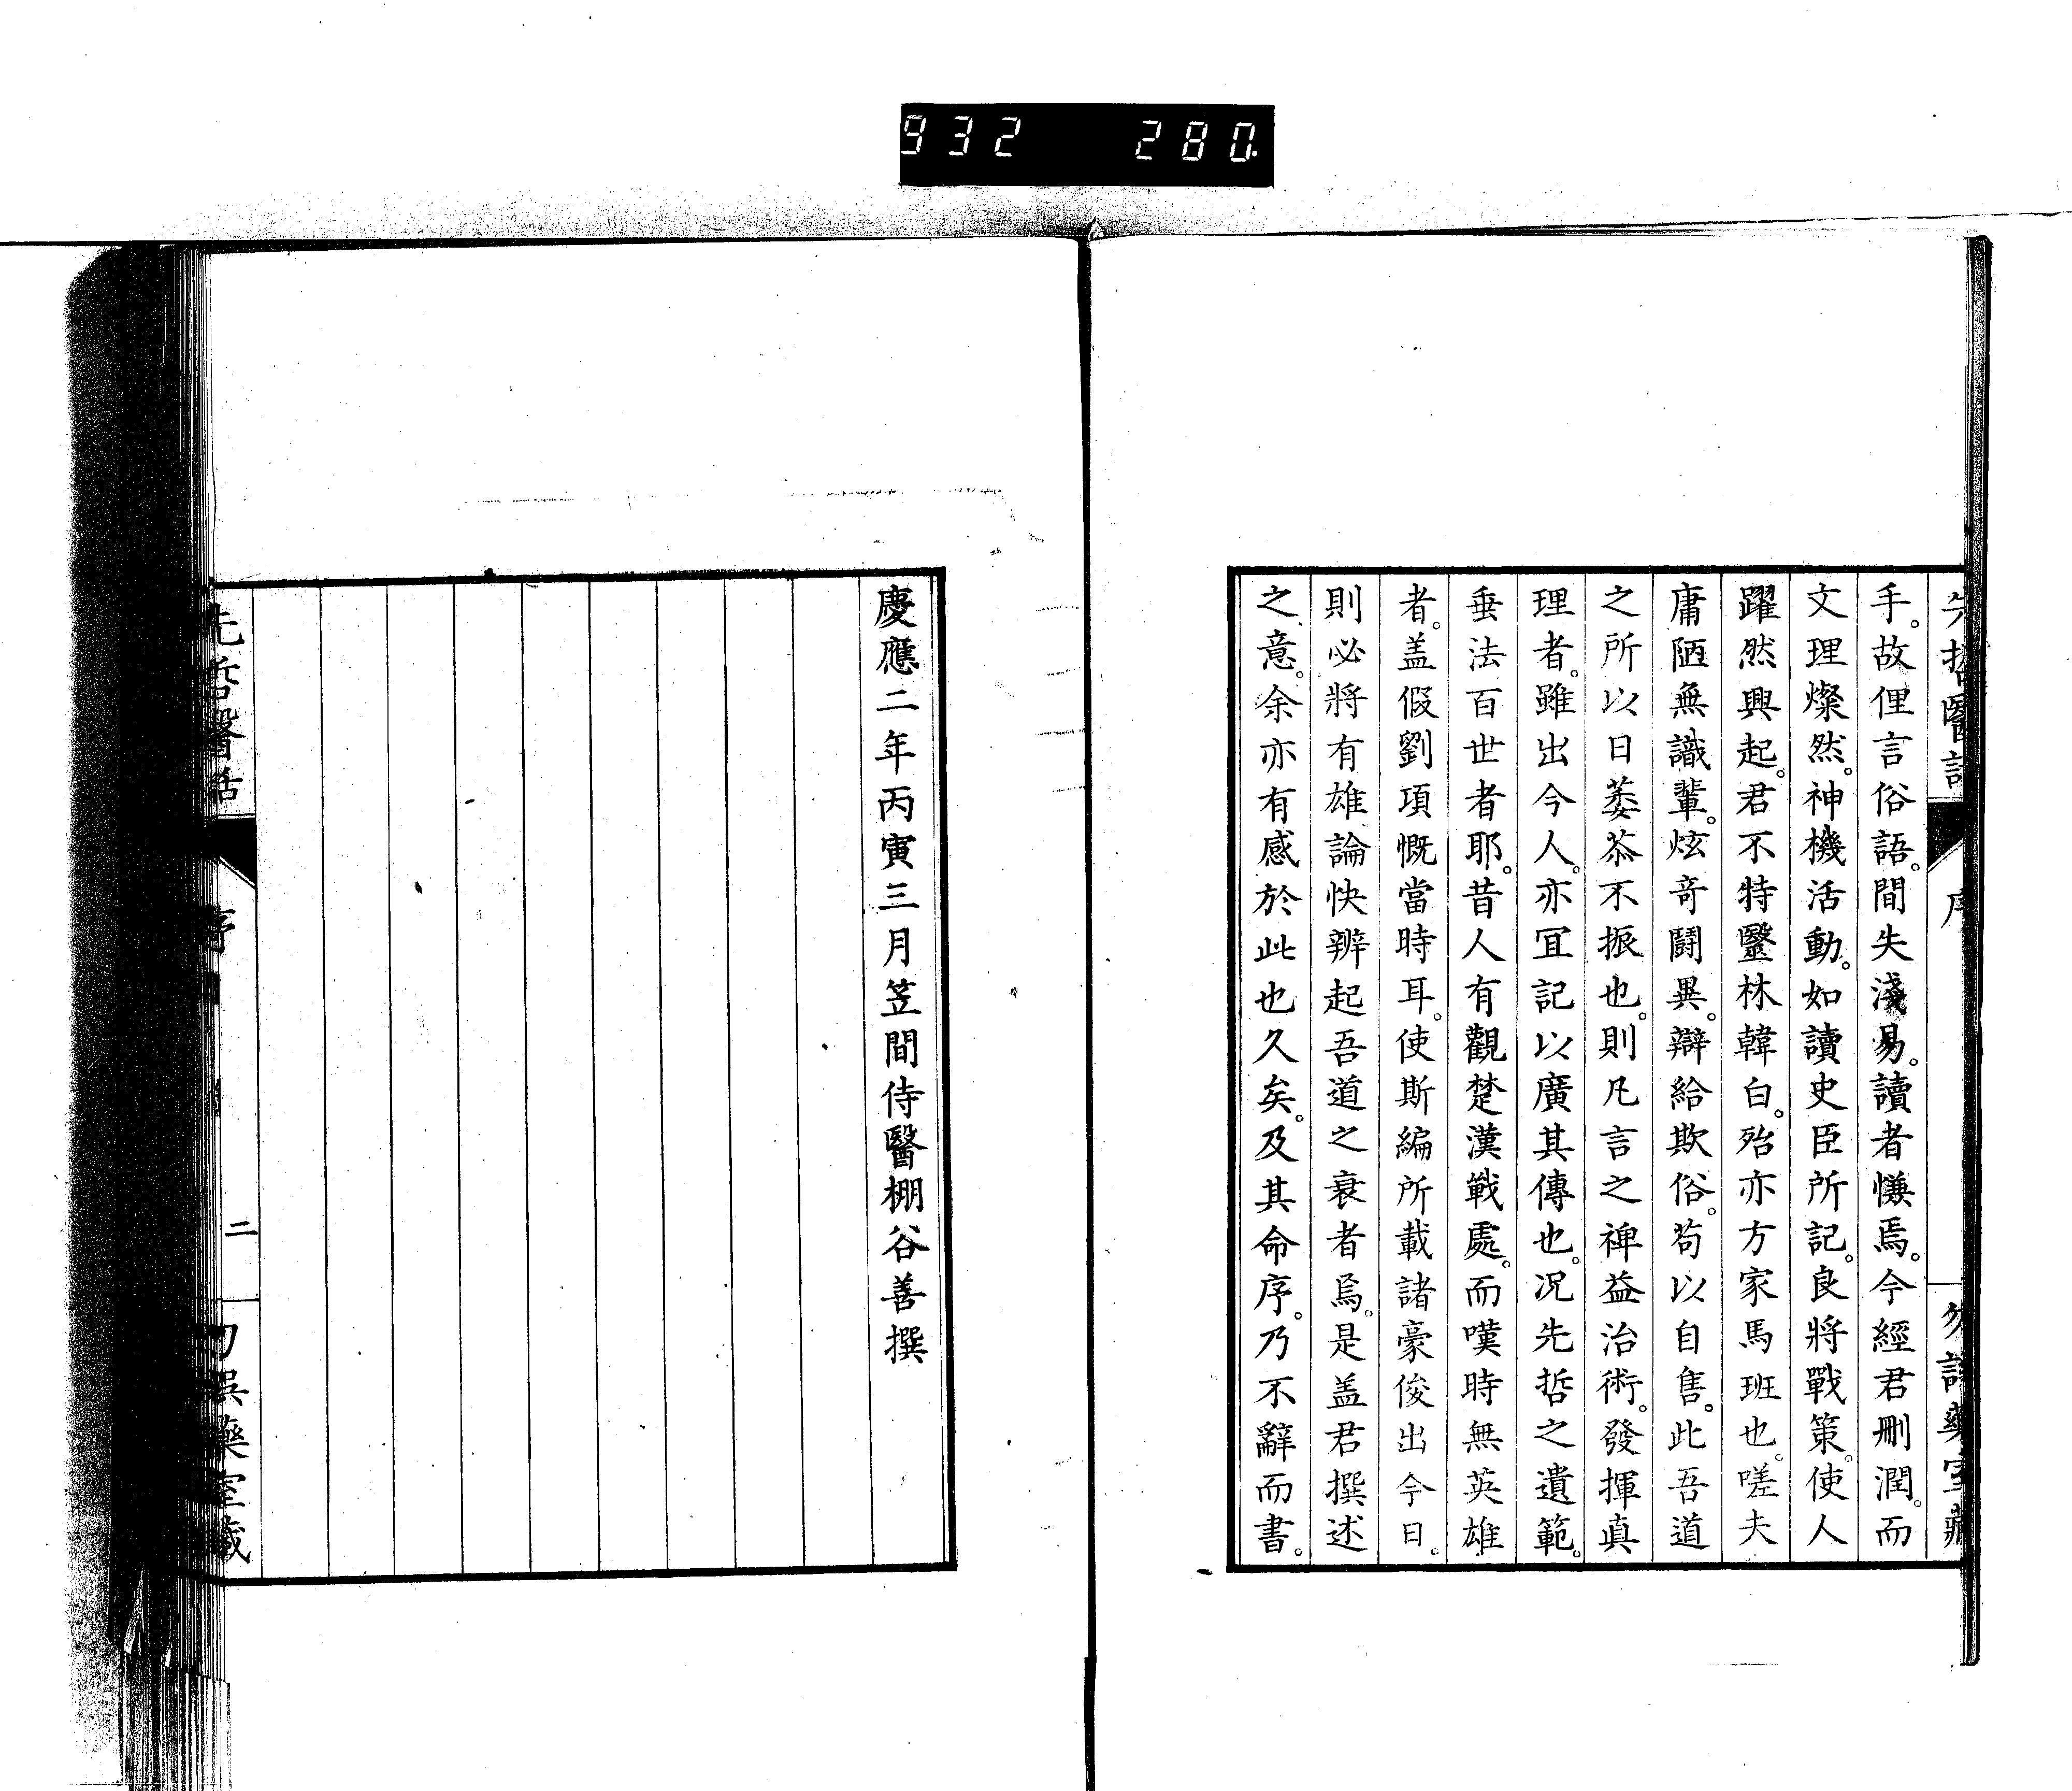 932 280
先哲醫話
序
勿誤藥室藏
手。故俚言俗語。間失淺易。讀者慊焉。今經君刪潤。而
文理燦然。神機活動。如讀史臣所記。良將戰策。使人
躍然興起。君不特毉林韓白。殆亦方家馬班也。嗟夫
庸陋無識輩。炫奇鬪異。辯給欺俗。苟以自售。此吾道
之所以日萎苶不振也。則凡言之裨益治術。發揮真
理者。雖出今人。亦冝記以廣其傳也。况先哲之遺範。
垂法百世者耶。昔人有觀楚漢戰處。而嘆時無英雄
者。盖假劉項慨當時耳。使斯編所載諸豪俊出今日。
則必將有雄論快辨起吾道之衰者焉。是盖君撰述
之意。余亦有感於此也久矣。及其命序。乃不辭而書。
慶應二年丙寅三月笠間侍醫棚谷善撰
先哲醫話
序
二
勿誤藥室藏